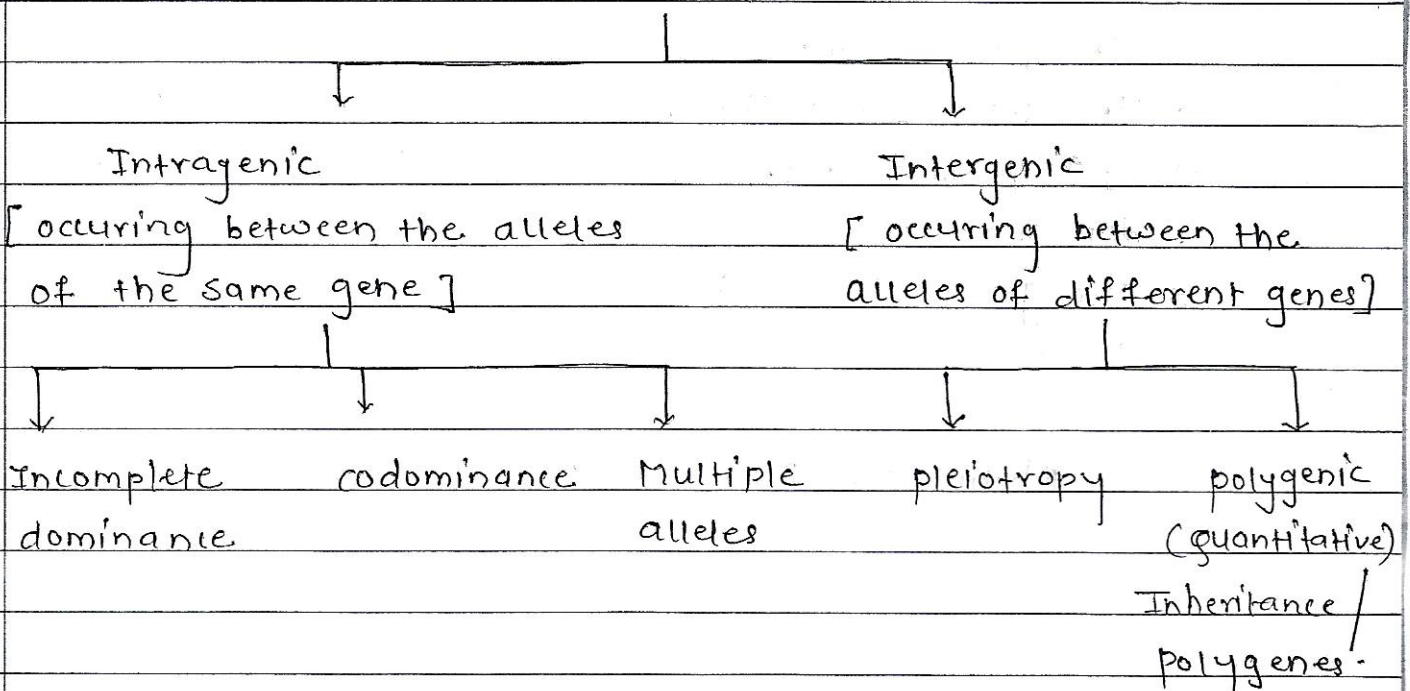 Intragenic
Intergenic
[ occuring between the alleles
of the same gene ]
[ occuring between the
alleles of different genes]
Incomplete
dominance
codominance
Multiple
alleles
pleiotropy
polygenic
(quantitative)
Inheritance /
polygenes.